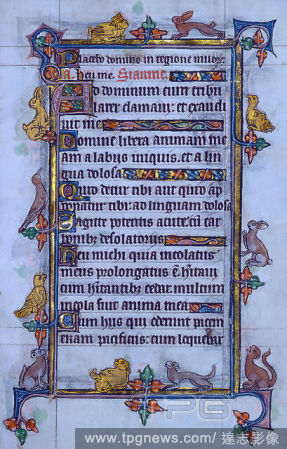 Placebo domino in regione viuor̄
A. heu me. Psalmus.
Ad dominum cum tribu
larer clamaui: et exaudi
uit me
Domine libera animam me
am a labijs iniquis. et a lin
gua dolosa
Quid detur tibi aut quid ap
ponatur tibi: ad linguam dolosā
Sagitte potentis acute: cū car
bonibz desolatorijs
Heu michi quia incolatus
meus prolongatus ē hītaui
cum hītantibz cedar: multum
incola fuit anima mea
Cum hijs qui oderunt pacem
eram pacificus: cum loquebar
PG
www.tpgnews.com/ 達志影像